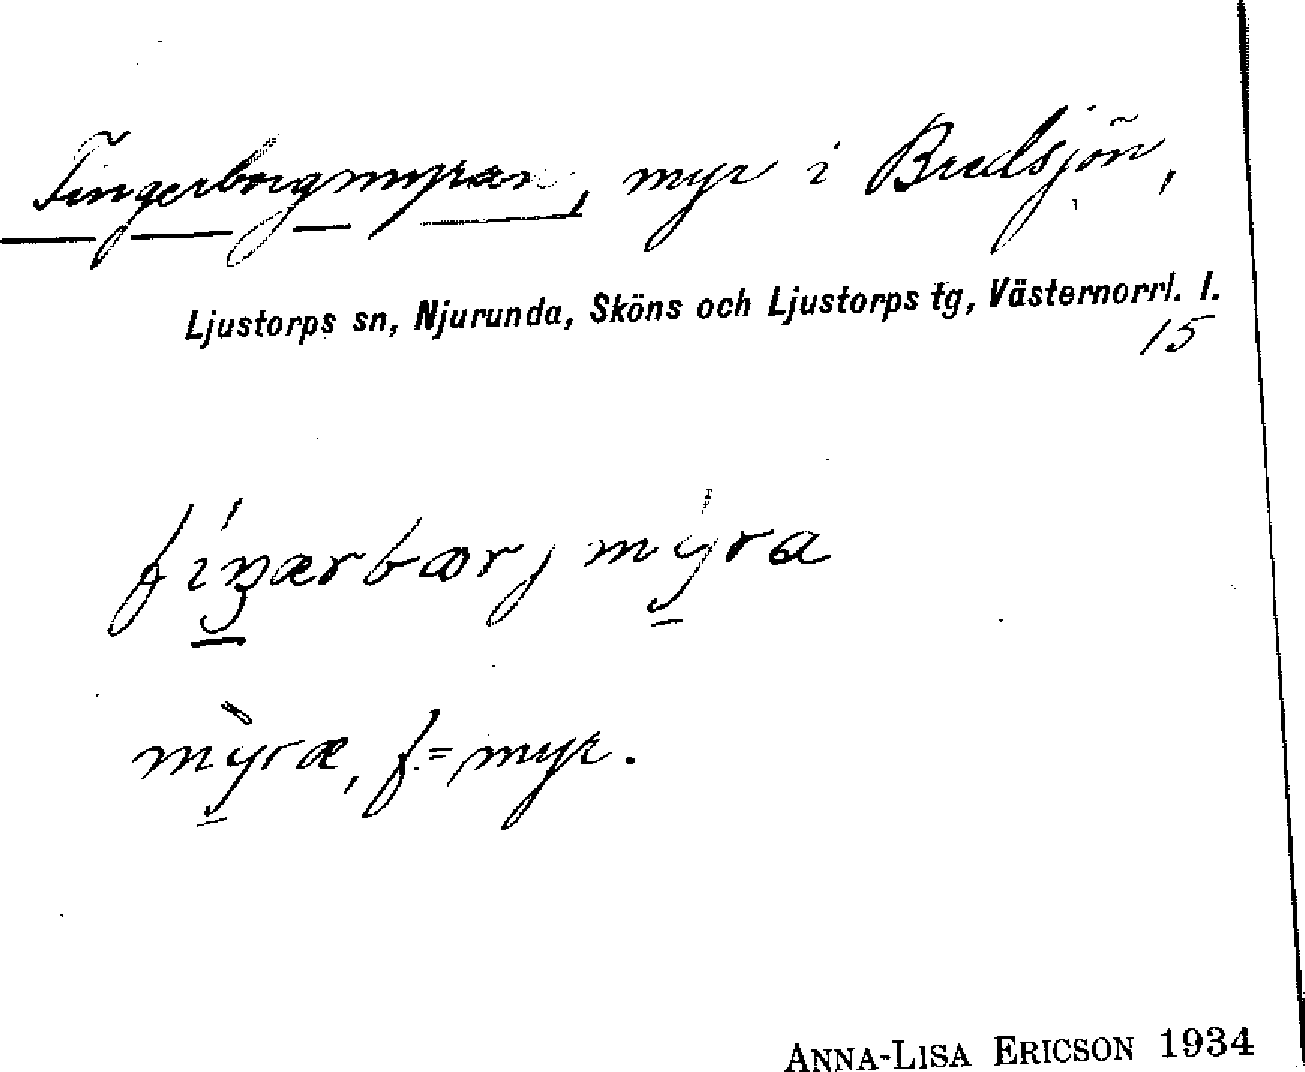 Fingerborgmyran, myr i Bredsjön,
Ljustorps sn, Njurunda, Sköns och Ljustorps tg, Västernorrl. l.
15
fíŋærbɷrj mýra
mỳræ, f. = myr.
ANNA-LISA ERICSON 1934